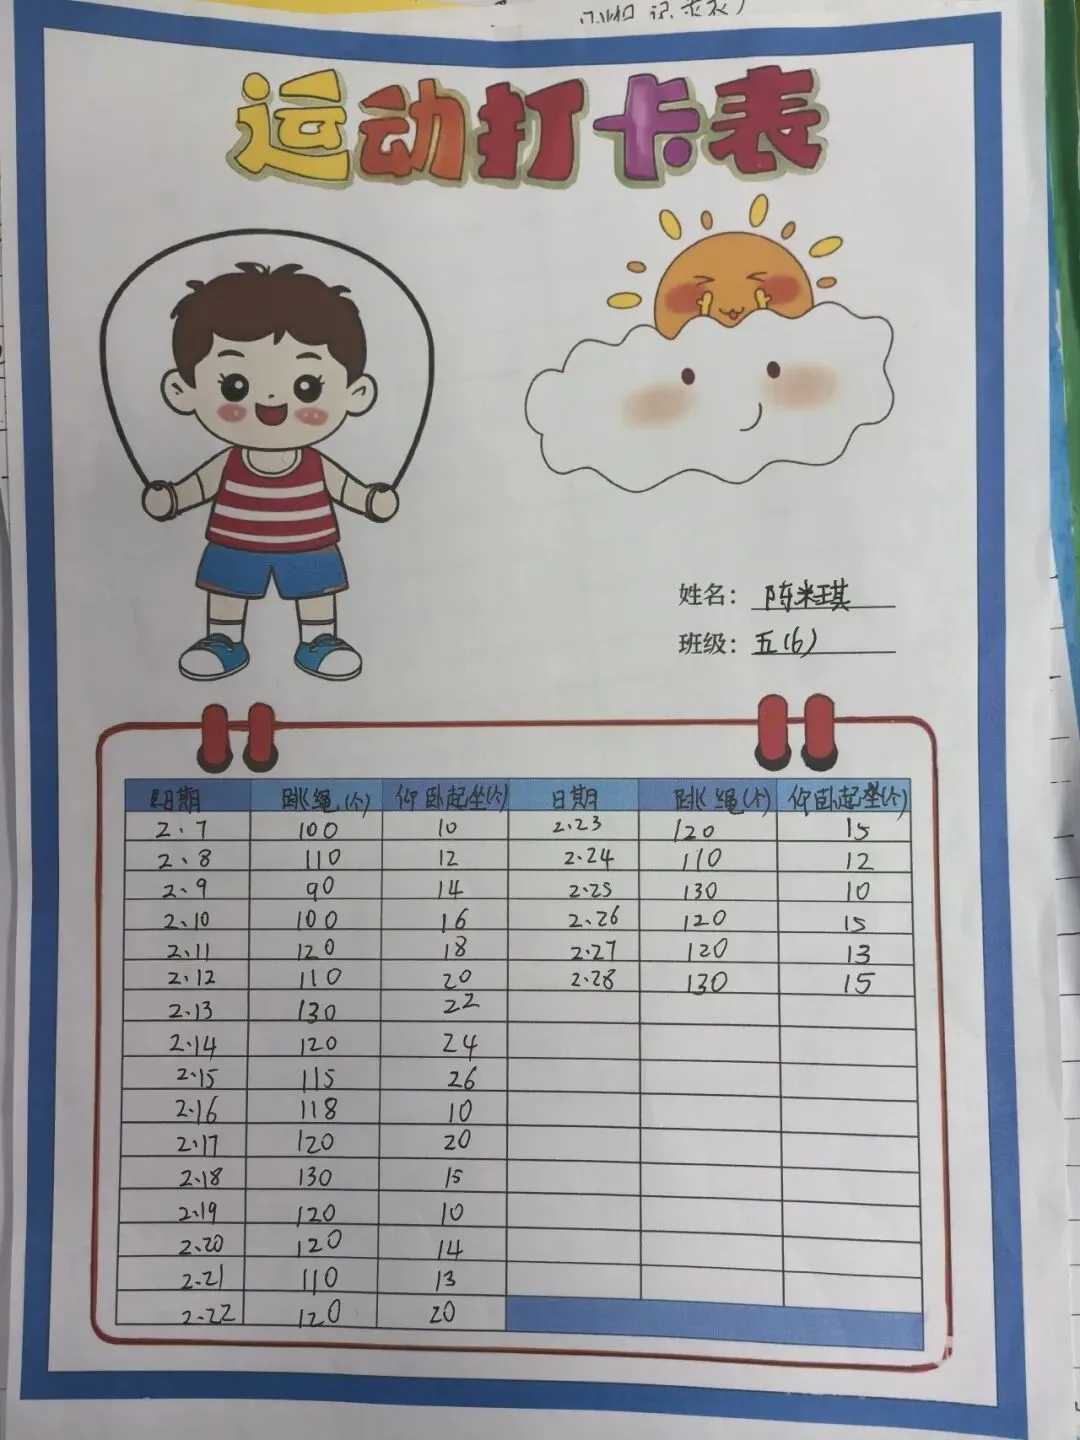 运动打卡表
姓名：陈米琪
班级：五(6)
日期 跳绳(个) 仰卧起坐(个) 日期 跳绳(个) 仰卧起坐(个)
2.7 100 10 2.23 120 15
2.8 110 12 2.24 110 12
2.9 90 14 2.25 130 10
2.10 100 16 2.26 120 15
2.11 120 18 2.27 120 13
2.12 110 20 2.28 130 15
2.13 130 22
2.14 120 24
2.15 115 26
2.16 118 10
2.17 120 20
2.18 130 15
2.19 120 10
2.20 120 14
2.21 110 13
2.22 120 20